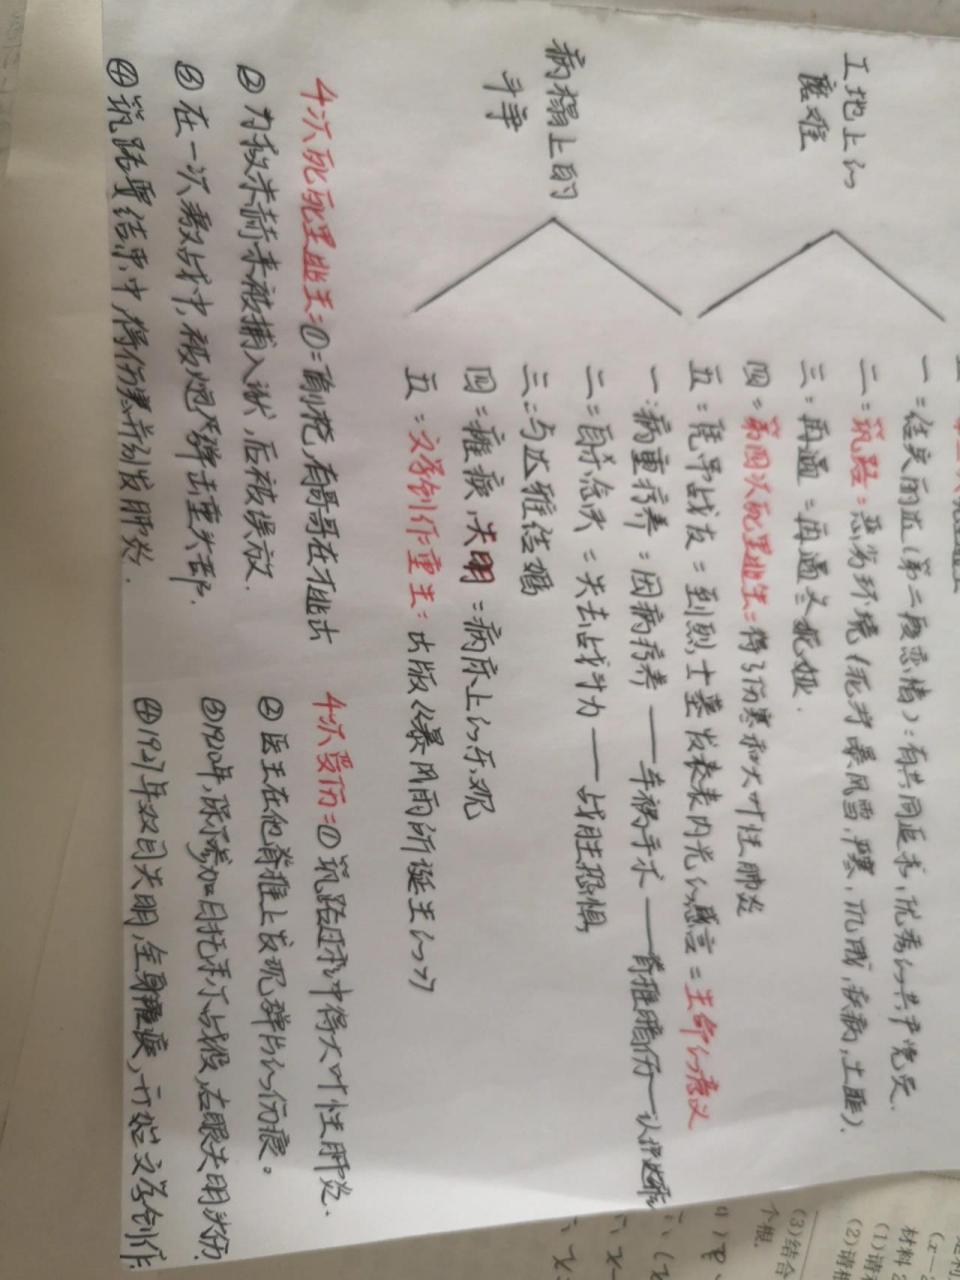 一：住丽达（第二段恋情）：有共同追求，优秀的共产党员.
工地上的磨难
二：筑路：恶劣环境（泥泞暴风雪，严寒，饥饿，疾病，土匪）.
三：再遇：再遇冬妮娅.
四：第四次死里逃生：得了伤寒和大叶性肺炎
五：凭吊战友：到烈士墓发表内心的感言：生命的意义
病榻上的斗争
一：病重疗养：因病疗养——车祸手术——脊椎暗伤——
二：自杀念头：失去战斗力——战胜恐惧
三：与达雅结婚
四：瘫痪、失明：病床上的乐观
五：文学创作：重生：出版《暴风雨所诞生的》
4次死死里逃生：①：前枪，有哥哥在逃出
②为救朱赫来被捕入狱，后被误放.
③在一次激战中，被炮弹击重头部.
④筑路要结束中，得伤寒并引发肺炎.
4次受伤：①筑路过程中得大叶性肺炎.
②医生在他脊椎上发现碎片的伤痕。
③1920年，保尔参加战役，右眼失明头伤.
④1927年双目失明，全身瘫痪，开始文学创作
(3)结合
个根.
材料
(1)请
(2)请